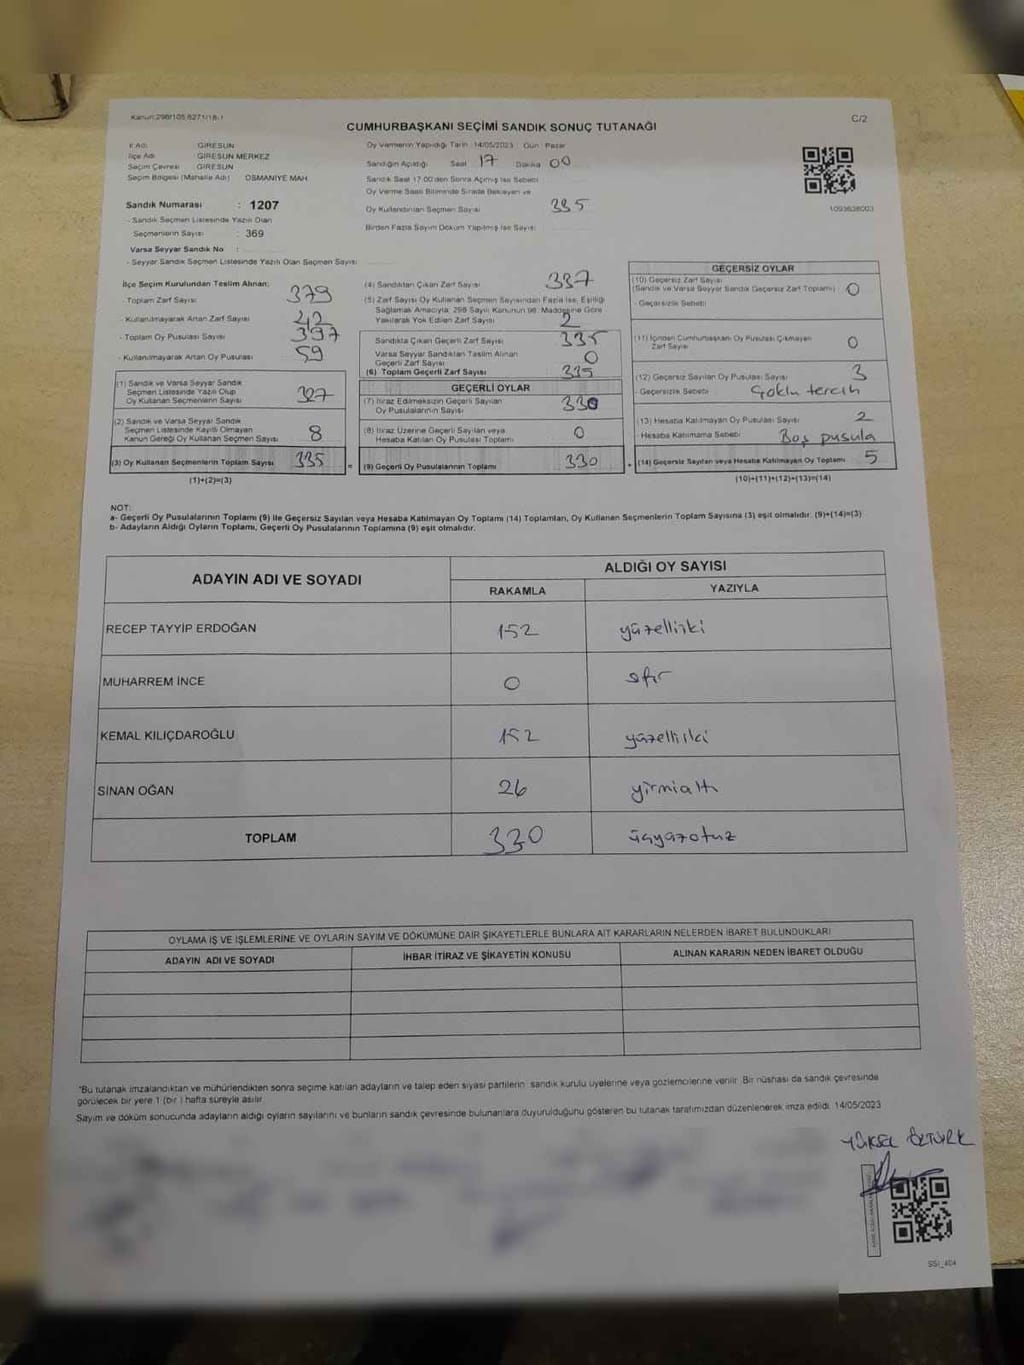 Kanun:298/105,6271/18-1
C/2
CUMHURBAŞKANI SEÇİMİ SANDIK SONUÇ TUTANAĞI
İl Adı GİRESUN
İlçe Adı GİRESUN MERKEZ
Seçim Çevresi GİRESUN
Seçim Bölgesi (Mahalle Adı) OSMANİYE MAH
Sandık Numarası : 1207
- Sandık Seçmen Listesinde Yazılı Olan
Seçmenlerin Sayısı : 369
Varsa Seyyar Sandık No :
- Seyyar Sandık Seçmen Listesinde Yazılı Olan Seçmen Sayısı
Oy Vermenin Yapıldığı Tarih : 14/05/2023 Gün : Pazar
Sandığın Açıldığı Saat 17 Dakika 00
Sandık Saat 17.00'den Sonra Açılmış İse Sebebi
Oy Verme Saati Bitiminde Sırada Bekleyen ve
Oy Kullandırılan Seçmen Sayısı 335
Birden Fazla Sayım Döküm Yapılmış İse Sayısı
1093638003
İlçe Seçim Kurulundan Teslim Alınan;
- Toplam Zarf Sayısı 379
- Kullanılmayarak Artan Zarf Sayısı 42
- Toplam Oy Pusulası Sayısı 397
- Kullanılmayarak Artan Oy Pusulası 59
(1) Sandık ve Varsa Seyyar Sandık
Seçmen Listesinde Yazılı Olup
Oy Kullanan Seçmenlerin Sayısı 327
(2) Sandık ve Varsa Seyyar Sandık
Seçmen Listesinde Kayıtlı Olmayan
Kanun Gereği Oy Kullanan Seçmen Sayısı 8
(3) Oy Kullanan Seçmenlerin Toplam Sayısı 335
(1)+(2)=(3)
(4) Sandıktan Çıkan Zarf Sayısı 337
(5) Zarf Sayısı Oy Kullanan Seçmen Sayısından Fazla İse, Eşitliği
Sağlamak Amacıyla; 298 Sayılı Kanunun 98. Maddesine Göre
Yakılarak Yok Edilen Zarf Sayısı 2
Sandıkta Çıkan Geçerli Zarf Sayısı 335
Varsa Seyyar Sandıktan Teslim Alınan
Geçerli Zarf Sayısı 0
(6) Toplam Geçerli Zarf Sayısı 335
GEÇERLİ OYLAR
(7) İtiraz Edilmeksizin Geçerli Sayılan
Oy Pusulalarının Sayısı 330
(8) İtiraz Üzerine Geçerli Sayılan veya
Hesaba Katılan Oy Pusulası Toplamı 0
= (9) Geçerli Oy Pusulalarının Toplamı 330
GEÇERSİZ OYLAR
(10) Geçersiz Zarf Sayısı
(Sandık ve Varsa Seyyar Sandık Geçersiz Zarf Toplamı) 0
- Geçersizlik Sebebi
(11) İçinden Cumhurbaşkanı Oy Pusulası Çıkmayan
Zarf Sayısı 0
(12) Geçersiz Sayılan Oy Pusulası Sayısı 3
- Geçersizlik Sebebi Çoklu tercih
(13) Hesaba Katılmayan Oy Pusulası Sayısı 2
Hesaba Katılmama Sebebi Boş pusula
+ (14) Geçersiz Sayılan veya Hesaba Katılmayan Oy Toplamı 5
(10)+(11)+(12)+(13)=(14)
NOT:
a- Geçerli Oy Pusulalarının Toplamı (9) ile Geçersiz Sayılan veya Hesaba Katılmayan Oy Toplamı (14) Toplamları, Oy Kullanan Seçmenlerin Toplam Sayısına (3) eşit olmalıdır. (9)+(14)=(3)
b- Adayların Aldığı Oyların Toplamı, Geçerli Oy Pusulalarının Toplamına (9) eşit olmalıdır.
ADAYIN ADI VE SOYADI ALDIĞI OY SAYISI
RAKAMLA YAZIYLA
RECEP TAYYİP ERDOĞAN 152 yüzelliiki
MUHARREM İNCE 0 sıfır
KEMAL KILIÇDAROĞLU 152 yüzelliiki
SİNAN OĞAN 26 yirmialtı
TOPLAM 330 üçyüzotuz
OYLAMA İŞ VE İŞLEMLERİNE VE OYLARIN SAYIM VE DÖKÜMÜNE DAİR ŞİKAYETLERLE BUNLARA AİT KARARLARIN NELERDEN İBARET BULUNDUKLARI
ADAYIN ADI VE SOYADI İHBAR İTİRAZ VE ŞİKAYETİN KONUSU ALINAN KARARIN NEDEN İBARET OLDUĞU
*Bu tutanak imzalandıktan ve mühürlendikten sonra seçime katılan adayların ve talep eden siyasi partilerin sandık kurulu üyelerine veya gözlemcilerine verilir. Bir nüshası da sandık çevresinde
görülecek bir yere 1 (bir) hafta süreyle asılır.
Sayım ve döküm sonucunda adayların aldığı oyların sayılarını ve bunların sandık çevresinde bulunanlara duyurulduğunu gösteren bu tutanak tarafımızdan düzenlenerek imza edildi. 14/05/2023
YÜKSEL ÖZTÜRK
SSI_404